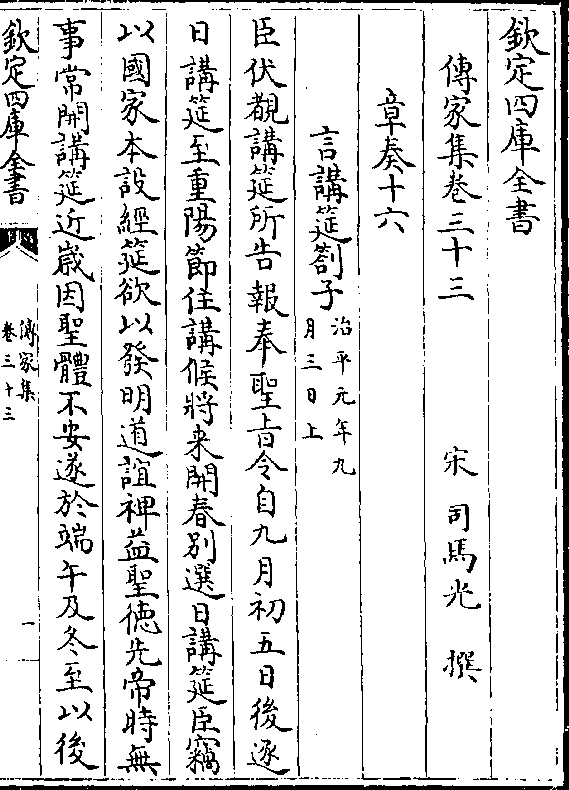 欽定四庫全書
傳家集卷三十三
宋 司馬光 撰
章奏十六
言講筵劄子
治平元年九
月三日上
臣伏覩講筵所告報奉聖旨令自九月初五日後逐
日講筵至重陽節住講候將来開春别選日講筵臣竊
以國家本設經筵欲以發明道誼裨益聖德先帝時無
事常開講筵近歳因聖體不安遂於端午及冬至以後
欽定四庫全書
傳家集
卷三十三
一